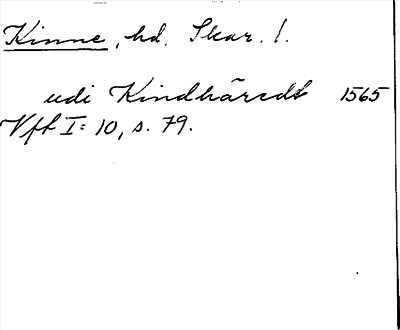 Kinne, hd. Skar. l.
udi Kindhäredt 1565
Vft I: 10, s. 79.